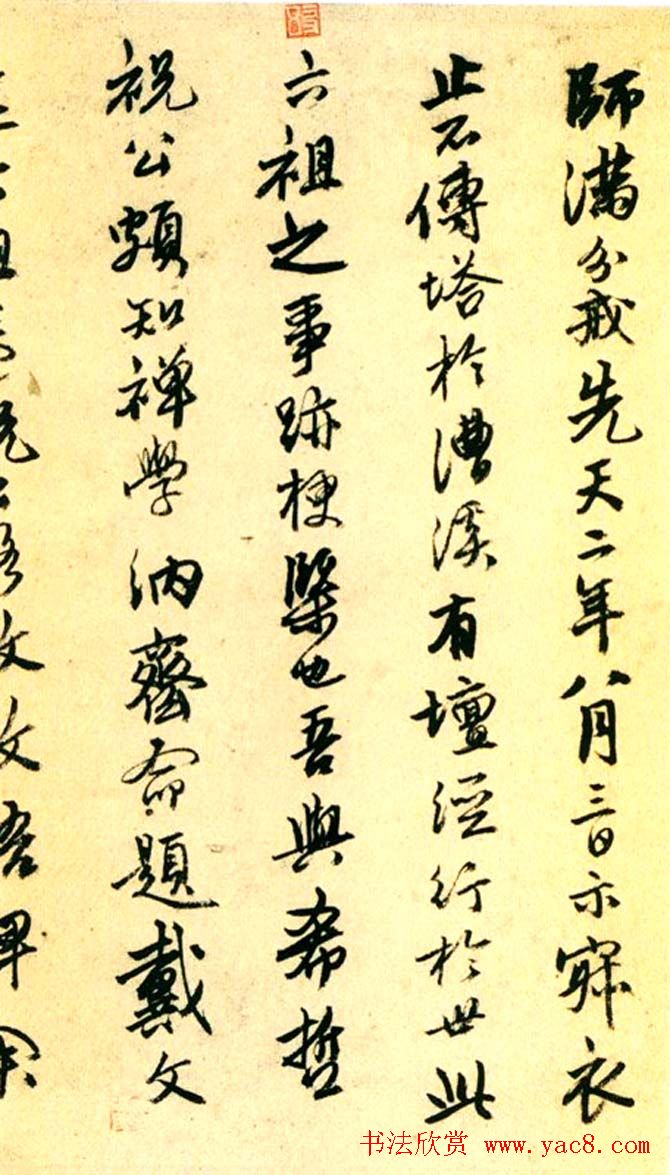 師滿分戒先天二年八月三日示寂衣
止不傳塔於漕溪有壇經行於世此
六祖之事跡梗槩也吾與希哲
祝公頗知禪學納齋命題戴文
书法欣赏 www.yac8.com